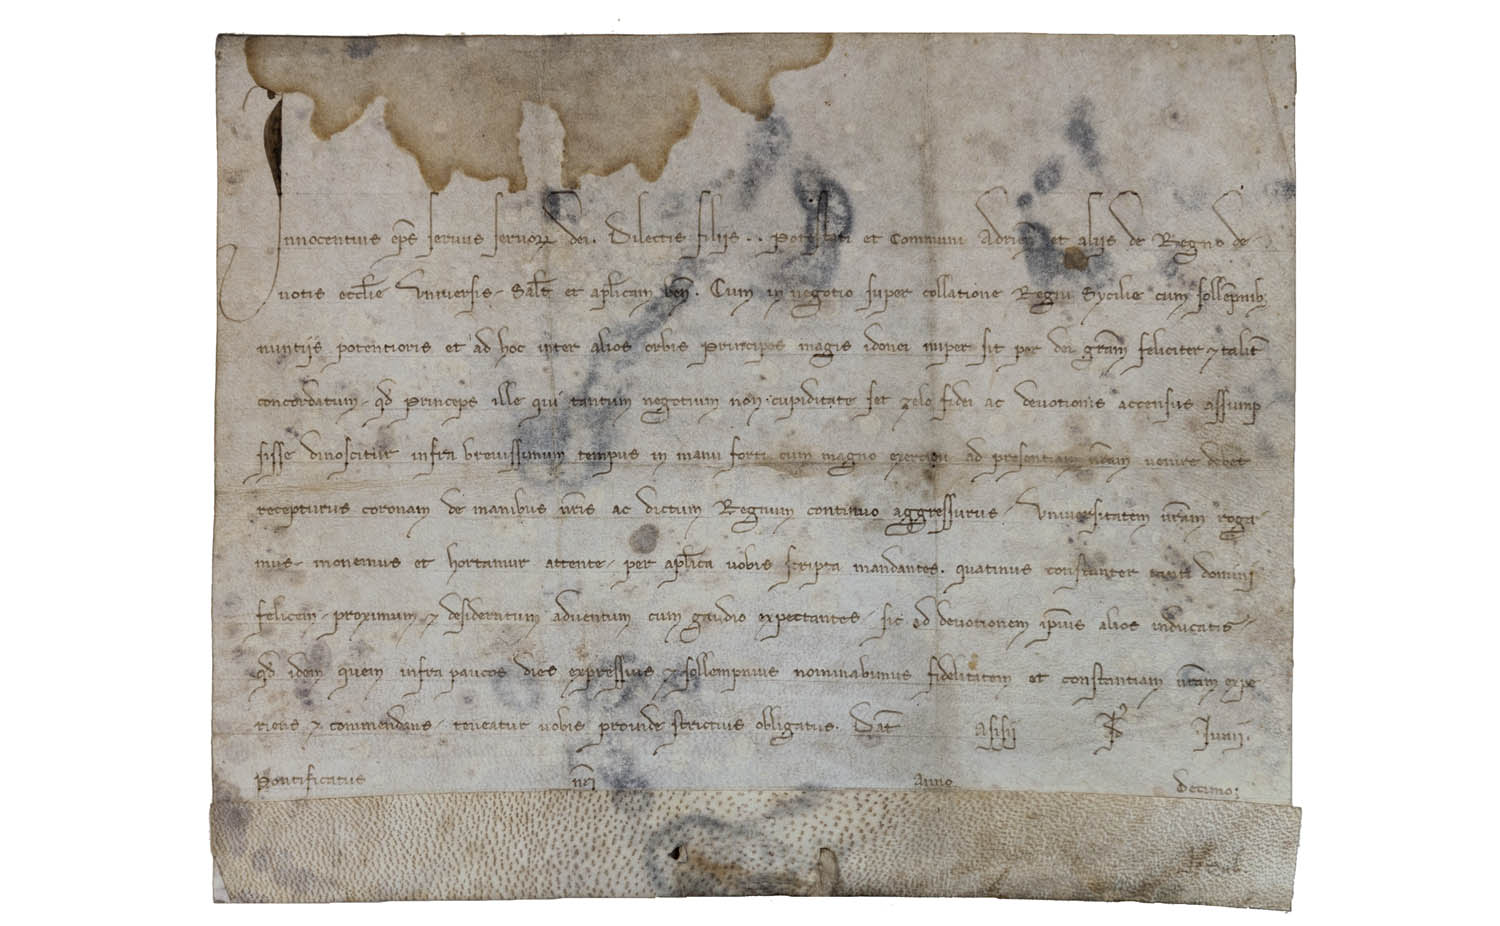 Innocentius ep̄s servus servoꝝ dei. Dilectis filiis . . Potestati et Communi Adrien et aliis de Regno de
votis eccl̄ie Universis Sal̄t et apl̄icam ben̄. Cum in negotio super collatione Regni Sycilie cum sollēpnib;
nuntijs potentioris et ad hoc inter alios orbis Principes magis idonei nuper sit per dei grām feliciter ⁊ talit̄
concordatum qd̄ Princeps ille qui tantum negotium non cupiditate set zelo fidei ac devotionis accensus assump
sisse dinoscitur infra brevissimum tempus in manu forti cum magno exercitu ad presentiam nr̄am venire debet
recepturus coronam de manibus nr̄is ac dictum Regnum continuo aggressurus Universitatem vr̄am roga
mus monemus et hortamur attente per apl̄ica vobis scripta mandantes. quatinus constanter tanti domini
felicem proximum ⁊ desideratum adventum cum gaudio expectantes sic ad devotionem ip̄ius alios inducatis
qd̄ idem quem infra paucos dies expressius ⁊ sollempnius nominabimus fidelitatem et constantiam vr̄am expe
riens ⁊ commendans teneatur vobis proinde strictius obligatus. Dat̄ Asisij Iunij.
Pontificatus nr̄i Anno Decimo;